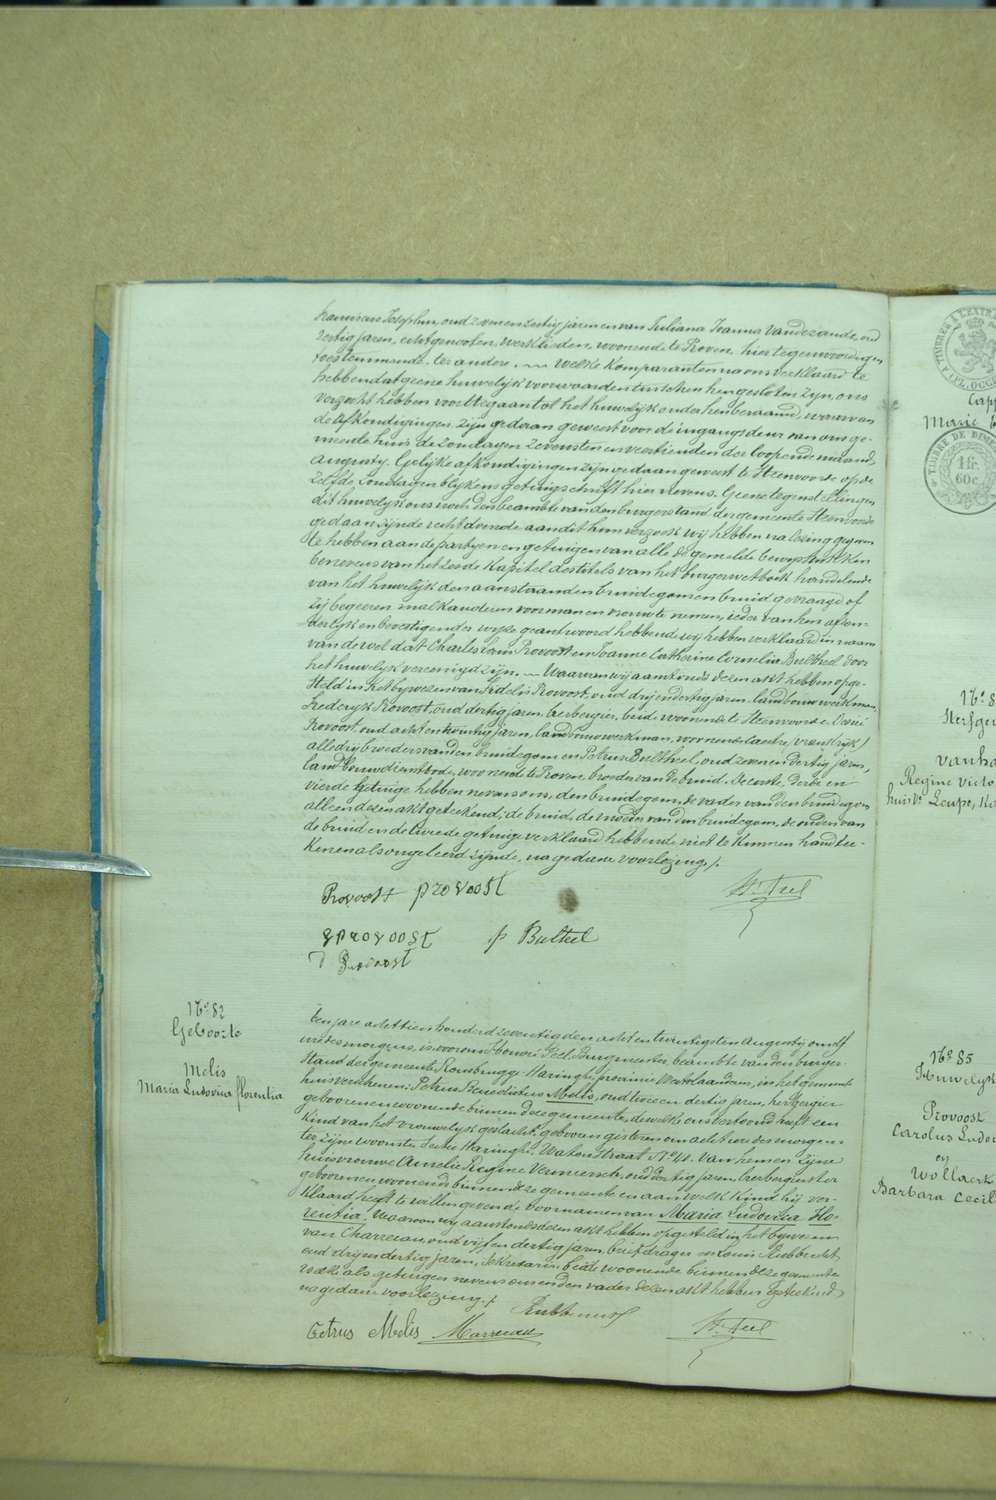 Franciscus Josephus, oud zeven en zestig jaren en van Juliana Joanna Vandezande, oud
zestig jaren, echtgenooten, werklieden, woonende te Proven, hier tegenwoordig en
toestemmende, ter andere. Welke Komparanten na ons verklaard te
hebben dat geene huwelijk voorwaarden tusschen hen gesloten zijn, ons
verzocht hebben voortte gaan tot het huwelijk onder hen beraamd, waarvan
de afkondigingen zijn gedaan geweest voor de ingangsdeur van ons ge-
meentehuis de zondagen zevensten en veertienden der loopende maand
Augusty. Gelijke afkondigingen zijn gedaan geweest te Steenvoorde op de
zelfde zondagen blijkens getuigschrift hier nevens. Geene tegenstellingen
dit huwelijk ons noch den beambte van den burgerstand der gemeente Steenvoorde
gedaan zijnde rechtdoende aan dit hun verzoek wij hebben na lezing gegeven
te hebben aan de partyen en getuigen van alle de gemelde bewysstukken
benevens van het zesde Kapitel des titels van het burgerwetboek handelende
van het huwelijk den aanstaanden bruidegom en bruid gevraagd of
zij begeeren malkanderen voor man en vrouw te nemen, ieder van hen afzon-
derlyk en bevestigender wyze geantwoord hebbende wij hebben verklaard in naam
van de wet dat Charles Louis Provoost en Joanne Catherine Cornelia Bultheel door
het huwelyk vereenigd zijn. Waarvan wij aanstonds dezen akt hebben opge-
steld in het bywezen van Fidelis Provoost, oud drij en dertig jaren, landbouwwerkman,
Frederyk Provoost, oud dertig jaren, herbergier, beide woonende te Steenvoorde,
Provoost, oud acht en twintig jaren, landbouwwerkman, woonende (vrankrijk)
alledrij broeders van den bruidegom en Petrus Bultheel, oud zeven en dertig jaren,
landbouwdienstbode, woonende te Proven, broeder van de bruid. De eerste, derde en
vierde getuige hebben nevens ons, den bruidegom, de vader van den bruidegom
alleen dezen akt geteekend; de bruid, de moeder van den bruidegom, de ouders van
de bruid en de tweede getuige verklaard hebbende niet te kunnen handtee-
kenen als ongeleerd zijnde, na gedane voorlezing.
Provoost provoost
St. Feel
provoost p Bulteel
Nº 82
Geboorte
Melis
Maria Ludovica florentia
Ten jare achttien honderd zeventig den acht en twintigsten Augusty om elf
ure des morgens, is voor ons Feel Burgmeester beambte van den burger-
stand der gemeente Rousbrugge-Haringhe provincie Westvlaandren, in het gemeente
huis verschenen: Petrus Benedictus Melis, oud twee en dertig jaren, herbergier
geboren en woonende binnen deze gemeente, dewelke ons vertoond heeft een
kind van het vrouwelyk geslacht, geboren gisteren om acht ure des morgens
ter zijne woonste Sectie Haringhe, Waton straat van hem en zijne
huisvrouwe Amelie Regine Vermeersch, oud dertig jaren, herbergierster
geboren en woonende binnen deze gemeente en aan welk kind hij ver-
klaard heeft te willen geven de voornamen van Maria Ludovica Flo-
rentia. Waarvan wij aanstonds dezen akt hebben opgesteld in het bywezen
van Charreeau, oud vijf en dertig jaren, briefdrager en Louis Rubbrecht
oud drij en dertig jaren, Sekretaris, beide woonende binnen deze gemeente
welke als getuigen nevens ons en den vader dezen akt hebben geteekend,
na gedane voorlezing.
Petrus Melis
St. Feel
TIMBRE DE DIMEN
1 fr.
60 c.
Marie
Nº 8
vanho
Regine victo
Nº 85
Huwelyk
Provoost
Carolus Ludov
en
Wollaert
Barbara Cecil